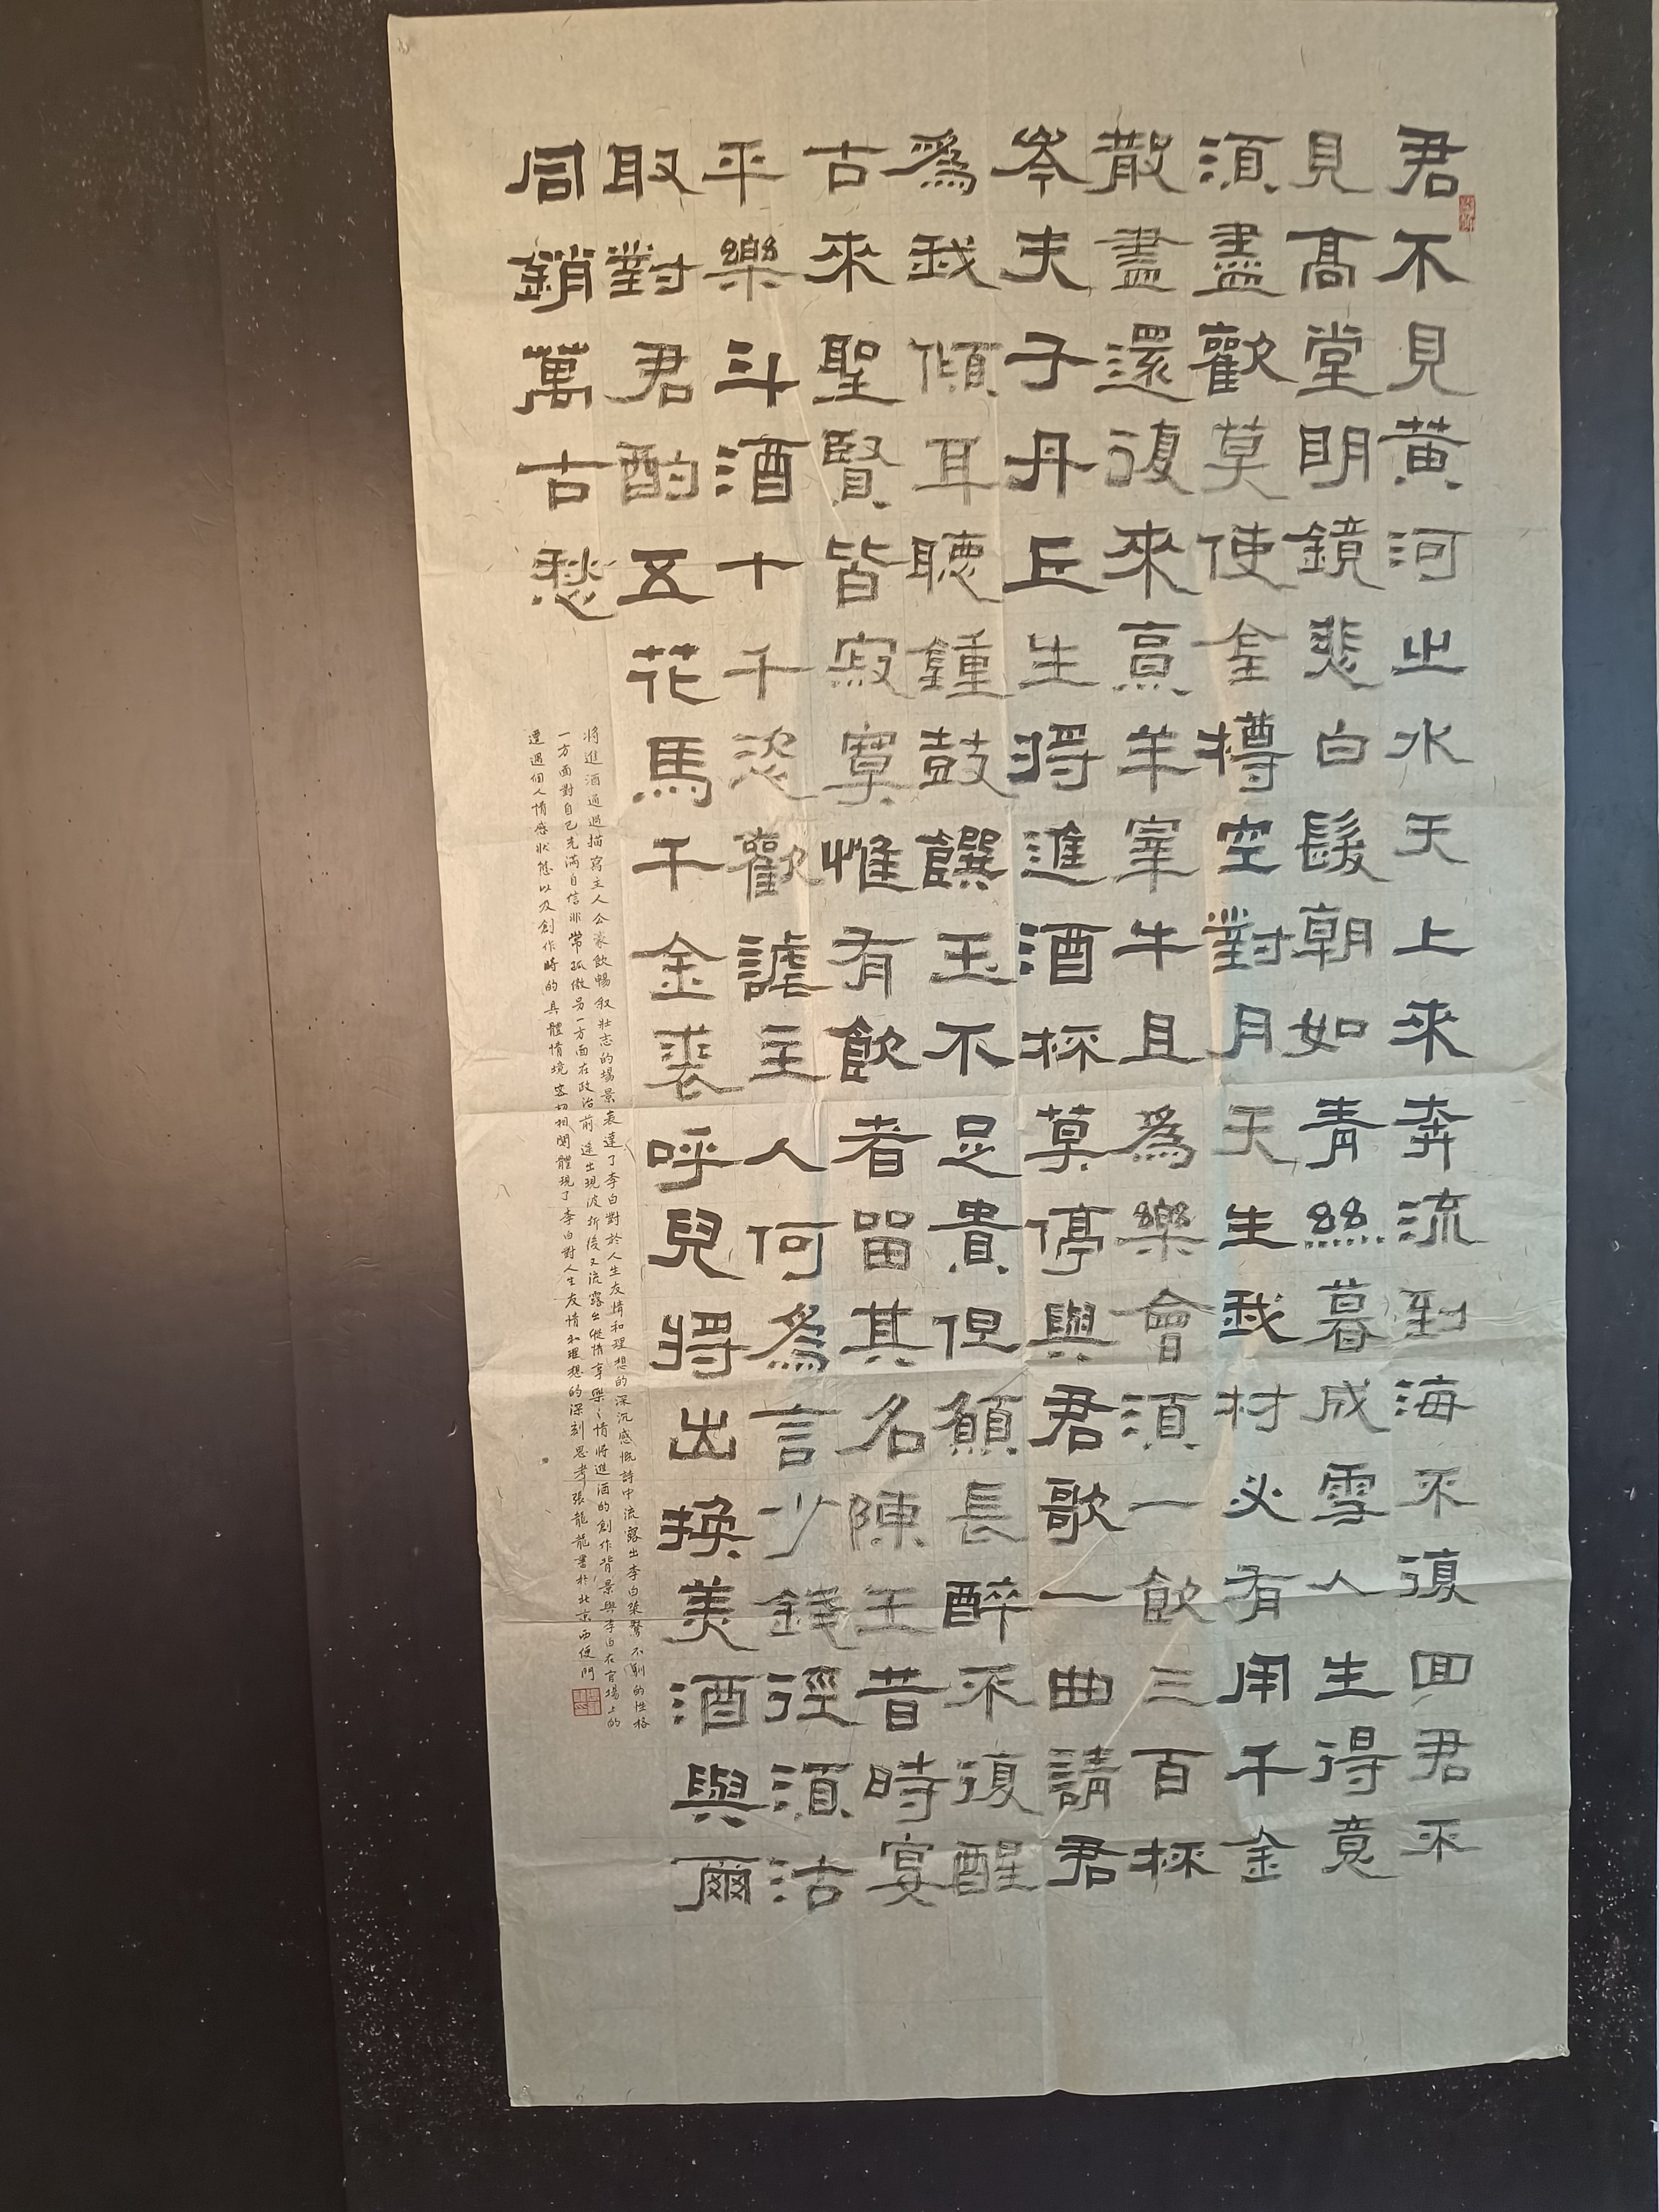 君不見黃河之水天上來奔流到海不復回君不
見高堂明鏡悲白髮朝如青絲暮成雪人生得意
須盡歡莫使金樽空對月天生我材必有用千金
散盡還復來烹羊宰牛且爲樂會須一飲三百杯
岑夫子丹丘生將進酒杯莫停與君歌一曲請君
爲我傾耳聽鍾鼓饌玉不足貴但願長醉不復醒
古來聖賢皆寂寞惟有飲者留其名陳王昔時宴
平樂斗酒十千恣歡謔主人何爲言少錢徑須沽
取對君酌五花馬千金裘呼兒將出換美酒與爾
同銷萬古愁
將進酒通過描寫主人公豪飲暢叙壯志的場景表達了李白對於人生友情和理想的深沉感慨詩中流露出李白桀驁不馴的性格
一方面對自己充滿自信非常孤傲另一方面在政治前途出現波折後又流露出縱情享樂之情將進酒的創作背景與李白在官場上的
遭遇個人情感狀態以及創作時的具體情境密切相関體現了李白對人生友情和理想的深刻思考張龍龍書於北京西便門